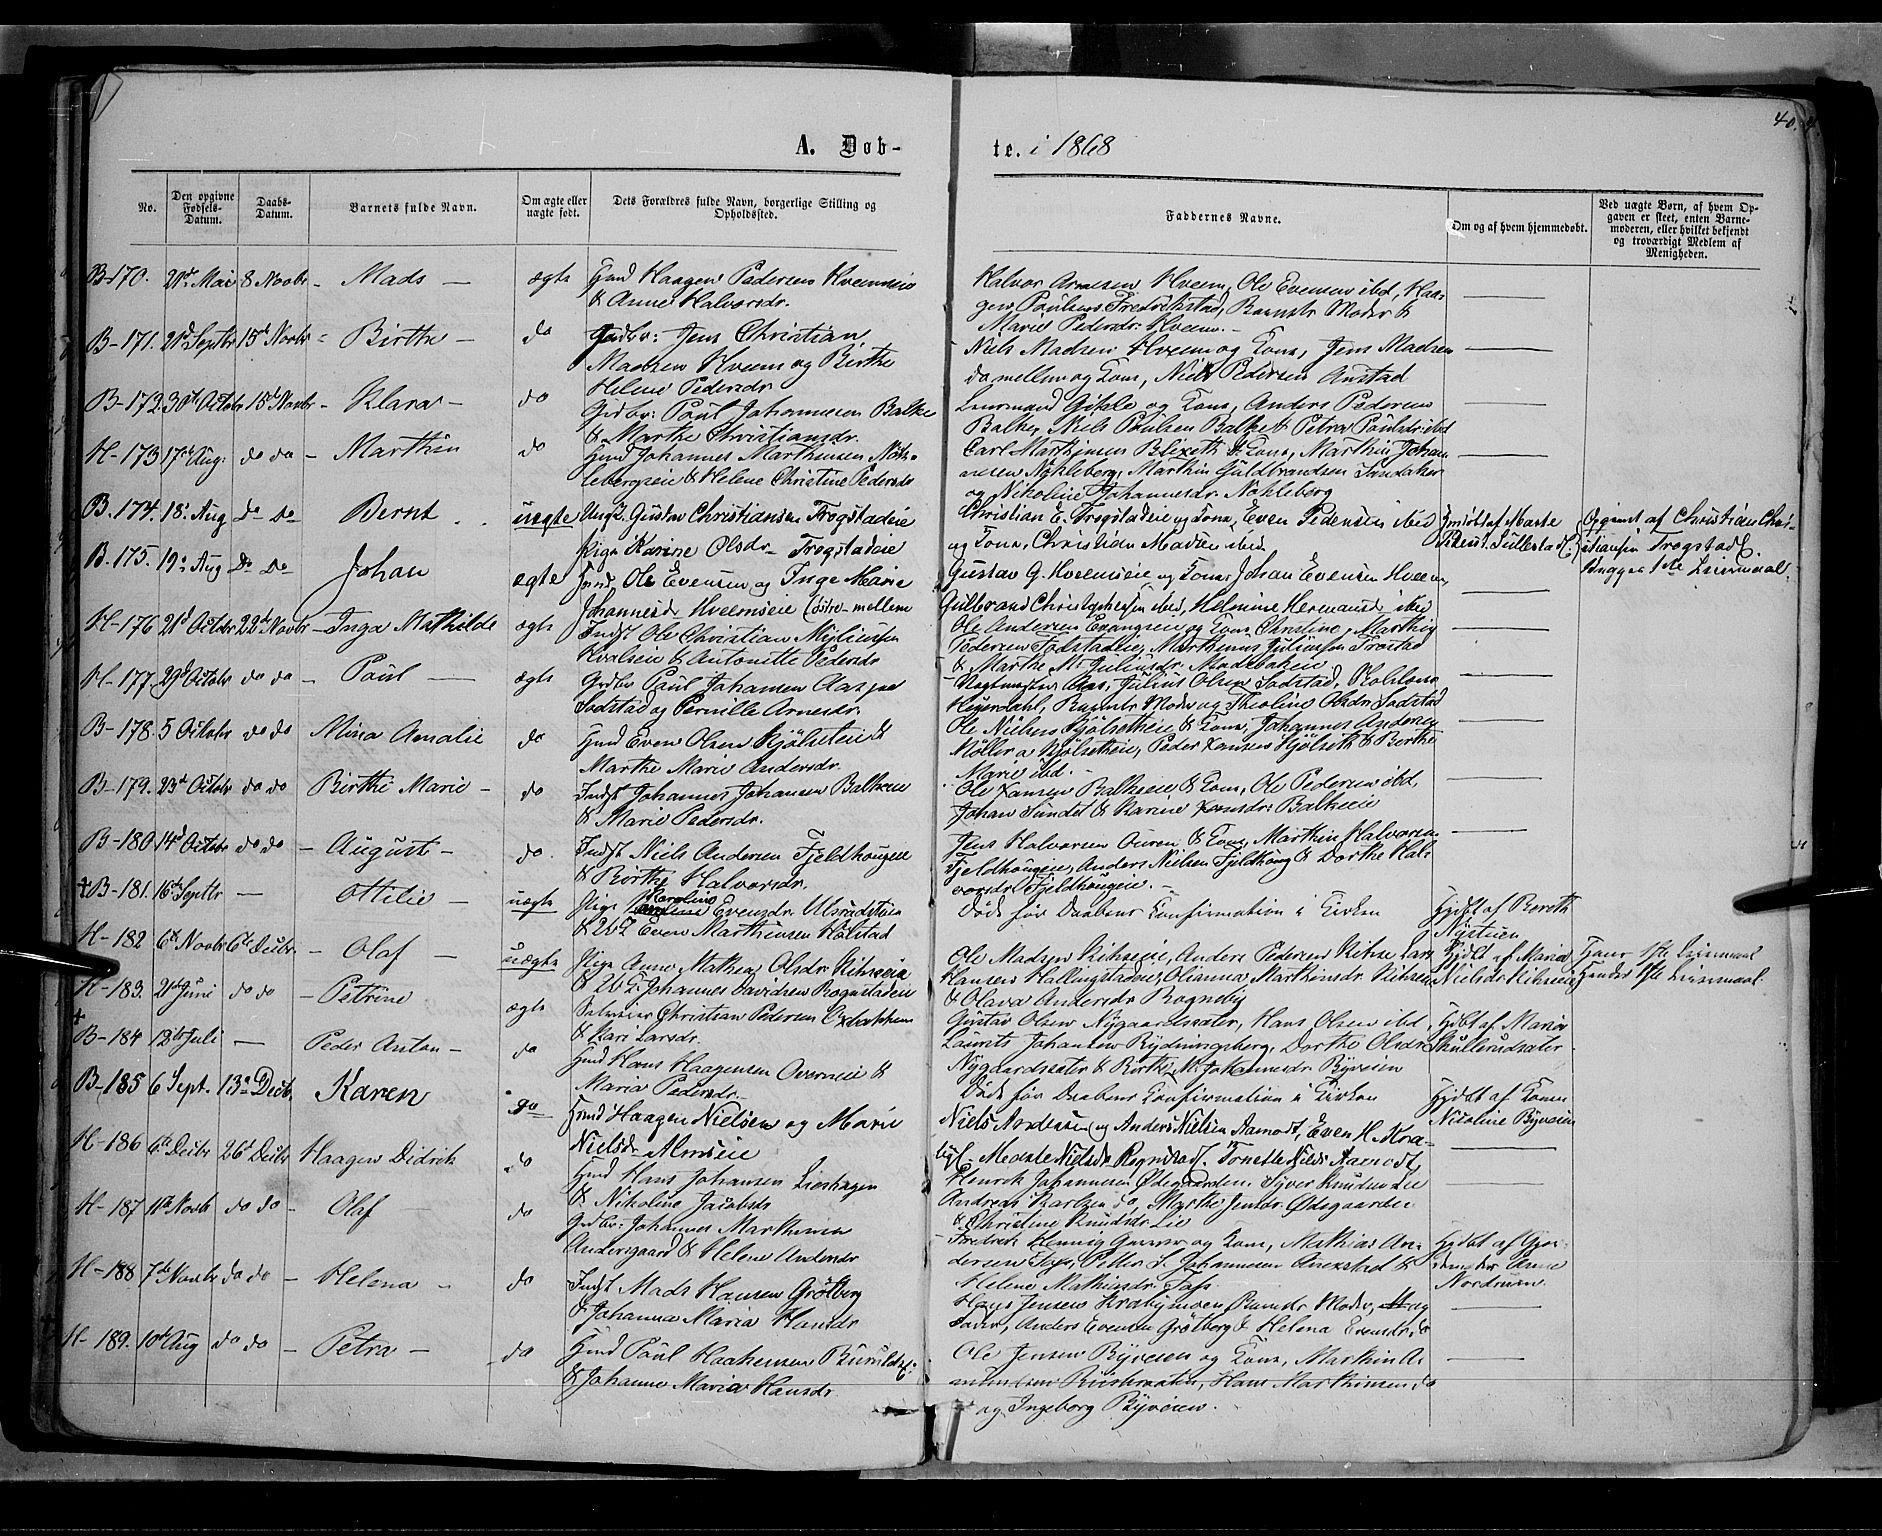 40.
A. Døb-
te. i 1868
No.
Den opgivne Fødsels-Datum.
Daabs-Datum.
Barnets fulde Navn.
Om ægte eller uægte født.
Dets Forældres fulde Navn, borgerlige Stilling og Opholdssted.
Faddernes Navne.
Om og af hvem hjemmedøbt.
Ved uægte Børn, af hvem Opgaven er skeet, enten Barnemoderen, eller hvilket bekjendt og troværdigt Medlem af Menigheden.
B-170. 21de Mai 8 Novbr - Mads - ægte Hmd Haagen Pedersen Hveemseie
& Anne Halvorsdr.
Halvor Arnesen Hveem, Ole Evensen ibd, Haa-
gen Paulsen Fredrikstad, Barnets Moder &
Marie Pedersdr Hveem. -
B-171. 21d Septbr 15d Novbr - Birthe - do Grdbr: Jens Christian
Madsen Hveem og Birthe
Helene Pedersdr
Niels Madsen Hveem og Kone, Jens Madsen
do mellem og Kone, Niels Pedersen Anstad
B-172. 30te Octobr 15d Novbr - Klara - do Grdbr: Paul Johannesen Balke
& Marthe Christiansdr.
Leensmand Gihle og Kone, Anders Pedersen
Balke, Niels Paulsen Balke & Petra Paulsdr ibd
H-173 17de Aug: do do - Marthin do Hmd Johannes Marthinsen Nøk-
lebergseie & Helene Christine Pedersdr
Carl Marthinsen Blixeth & Kone, Marthin Johan-
nesen Nøkleberg, Marthin Guldbrandsen Sandaker
og Nikoline Johannesdr. Nøkleberg
B. 174. 18. Aug Do Do Bernt uægte Ungk. Gustav Christiansen Trogstadeie
Pige Karine Olsdr Trogstadeie
Christian E. Trogstadeie og Kone, Even Pedersen ibd
og Kone, Christian Madsen ibid.
Hmdøbt af Marte
Sillestad
Opgivet af Christian Chri-
stiansen Trogstad.
Begges 1ste Leiermaal.
B. 175. 19. Aug Do Do Johan ægte Hmd. Ole Evensen og Inge Marie
Johannesdr Hveemseie (østre-mellem
Gustav G. Hveemseie og Kone, Johan Evensen Hveem
Gulbrand Christophersen ibid, Helmine Hermansd. ibid
H-176 21d Octobr 22d Novbr - Inga Mathilde ægte Indst Ole Christian Nyliussen
Kvalseie & Antonette Pedersdr
Ole Andersen og Kone Christine, Marthin
Pedersen Fodstadeie, Marthinus Juliussen Frøstad
& Marthe M. Juliusdr.
H-177. 29d Octobr do do - Paul - ægte Grdbr Paul Johansen Aas paa
Sodstad og Pernille Arnesdr.
Aas, Julius Olsen Sodstad,
Heyerdahl, Barnets Moder og Theoline Olsdr Sodstad
B-178. 5 Octobr do do Mina Amalie do Hmd Even Olsen Kjølseteie &
Marthe Marie Andersdr.
Ole Nielsen Kjølsetheie & Kone, Johannes Andersen
Møller a Kjølsetheie, Peder Hansen Kjølseth & Berthe
Marie ibd.
B-179. 23d Octobr do do Birthe Marie - do Indst Johannes Johansen Balkeeie
& Marie Pedersdr.
Ole Hansen Balkeeie & Kone, Ole Pedersen ibd,
Johan Sundet & Karine Hansdr: Balkeeie
B-180 14d Octobr do do - August - do. Indst Niels Andersen Fjeldhougeie
& Birthe Halvorsdr.
Jens Halvorsen Ouren & Kone, Marthin Halvorsen
Fjeldhougeie, Anders Nielsen Fjeldhoug & Dorthe Hal-
vorsdr Fjeldhougeie. -
+B-181. 16de Septbr - Ottilie - uægte Pige Karoline
Evensdr Ulsrudstuen
& Even Marthinsen Holstad
Døde før Daabens Konfirmation i Kirken
Hjdøbt af Beroth
Nystuen
H-182 6te Novbr 6te Decbr - Olaf - uægte Pige Anne Mathea Olsdr Kihseeie
& Johannes Davidsen Rognstadeie
Ole Madsen Kihseeie, Anders Pedersen Kihse, Lars
Hansen Hallingstadeie, Olianna Marthinsdr Kihseeie
& Olava Andersdr Rogneby
Hjdøbt af Maria
Nielsdr Kihseeie
Hans 1ste Leiermaal
Hendes 1ste Leiermaal.
H-183. 21de Juni do do - Petrine ægte Christian Pedersen
& Kari Larsdr.
Gustav Olsen Nygaardssæter, Hans Olsen ibd
Laurits Johansen Rydningsberg, Dorthe Olsdr
Nygaardssæter & Birthe M. Johannesdr. Byveien
Hjdøbt af Maria
Skullerudsæter
+
B-184 18de Juli - Peder Anton - do Hmd Hans Haagensen Overneie &
Maria Pedersdr
Døde før Daabens Konfirmation i Kirken
Hjdøbt af Konen
Nicoline Byveien
B-185 6 Sept. 13de Decbr. Karen do Hmd Haagen Nielsen og Marie
Nielsdr Almseie
Niels Andersen og Anders Nielsen Aamodt, Even H. Kra-
byl. Medste Nielsdr Rognstad. Tonette Nilsdr Aamodt,
H-186 6te Decbr 26d Decbr Haagen Didrik do Hmd Hans Johansen Lieshagen
& Nikoline Jacobsdr
Henrik Johannesen Ødegaarden, Syver Knudsen Lie
Andreas Karlsen do, Marthe Jensdr Ødegaarden
& Christine Knudsdr Lie
H-187 11te Novbr do do - Olaf do Grdbr: Johannes Marthinsen
Andersgaard & Helene Andersdr
Fredrik Hennig og Kone, Mathias An-
dersen, Petter S. Johannesen &
Helene Mathisdr
Hjdøbt af Gjor-
demoder Anne
Nordrum.
H-188 7de Novbr do do - Helena - do Indst Mads Hansen Grøtberg
& Johanna Maria Hansdr
Hans Jensen Krabymoen, Barnets Moder, og
Fader, Anders Evensen Grøtberg & Helena Evensdr do
H-189. 10de Aug do do - Petra - do Hmd Paul Haakensen
& Johanne Maria Hansdr.
Ole Jensen Byveien og Kone, Marthin A-
mundsen, Hans Marthinsen do
og Ingeborg Byveien.